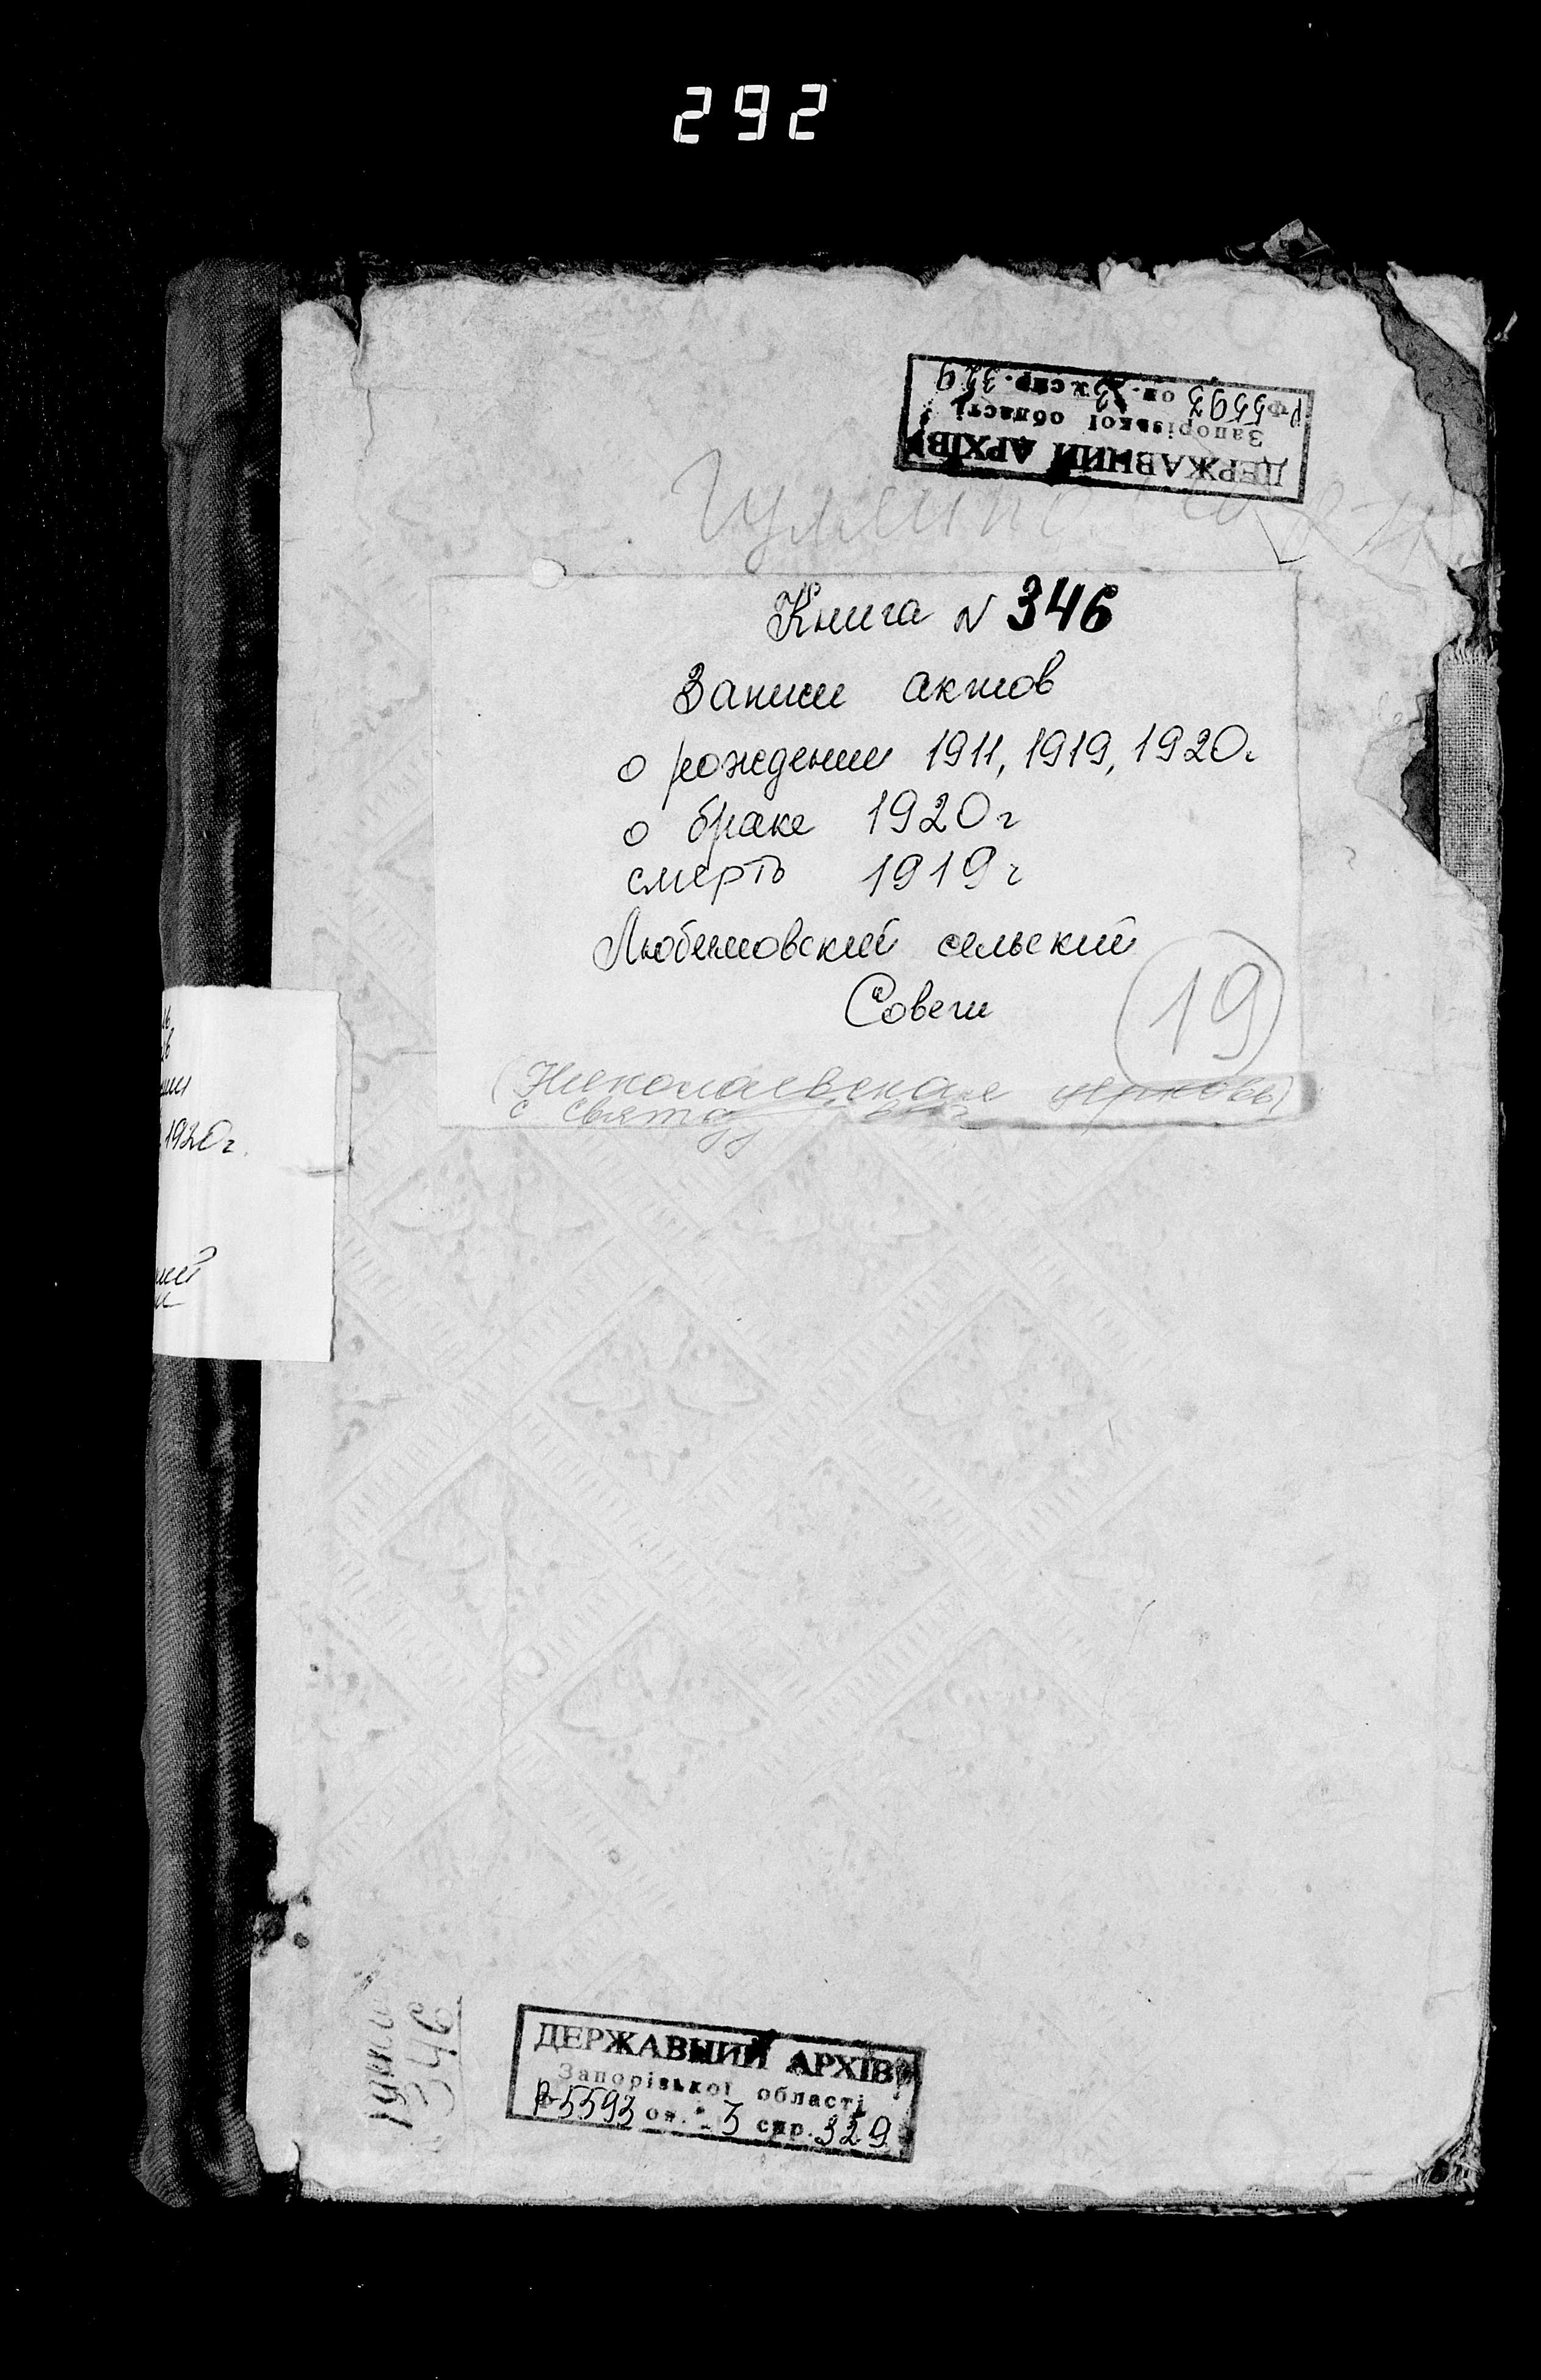 292
ДЕРЖАВНИЙ АРХІВ
Запорізької області
Р5593 оп. 3 спр. 329
Книга N 346
Записи актов
о рождении 1911, 1919, 1920г
о браке 1920г
смерть 1919г
Любимовский сельский
Совет
19
(Николаевская церковь)
1920г.
346
ДЕРЖАВНИЙ АРХІВ
Запорізької області
Р-5593 оп. 3 спр. 329